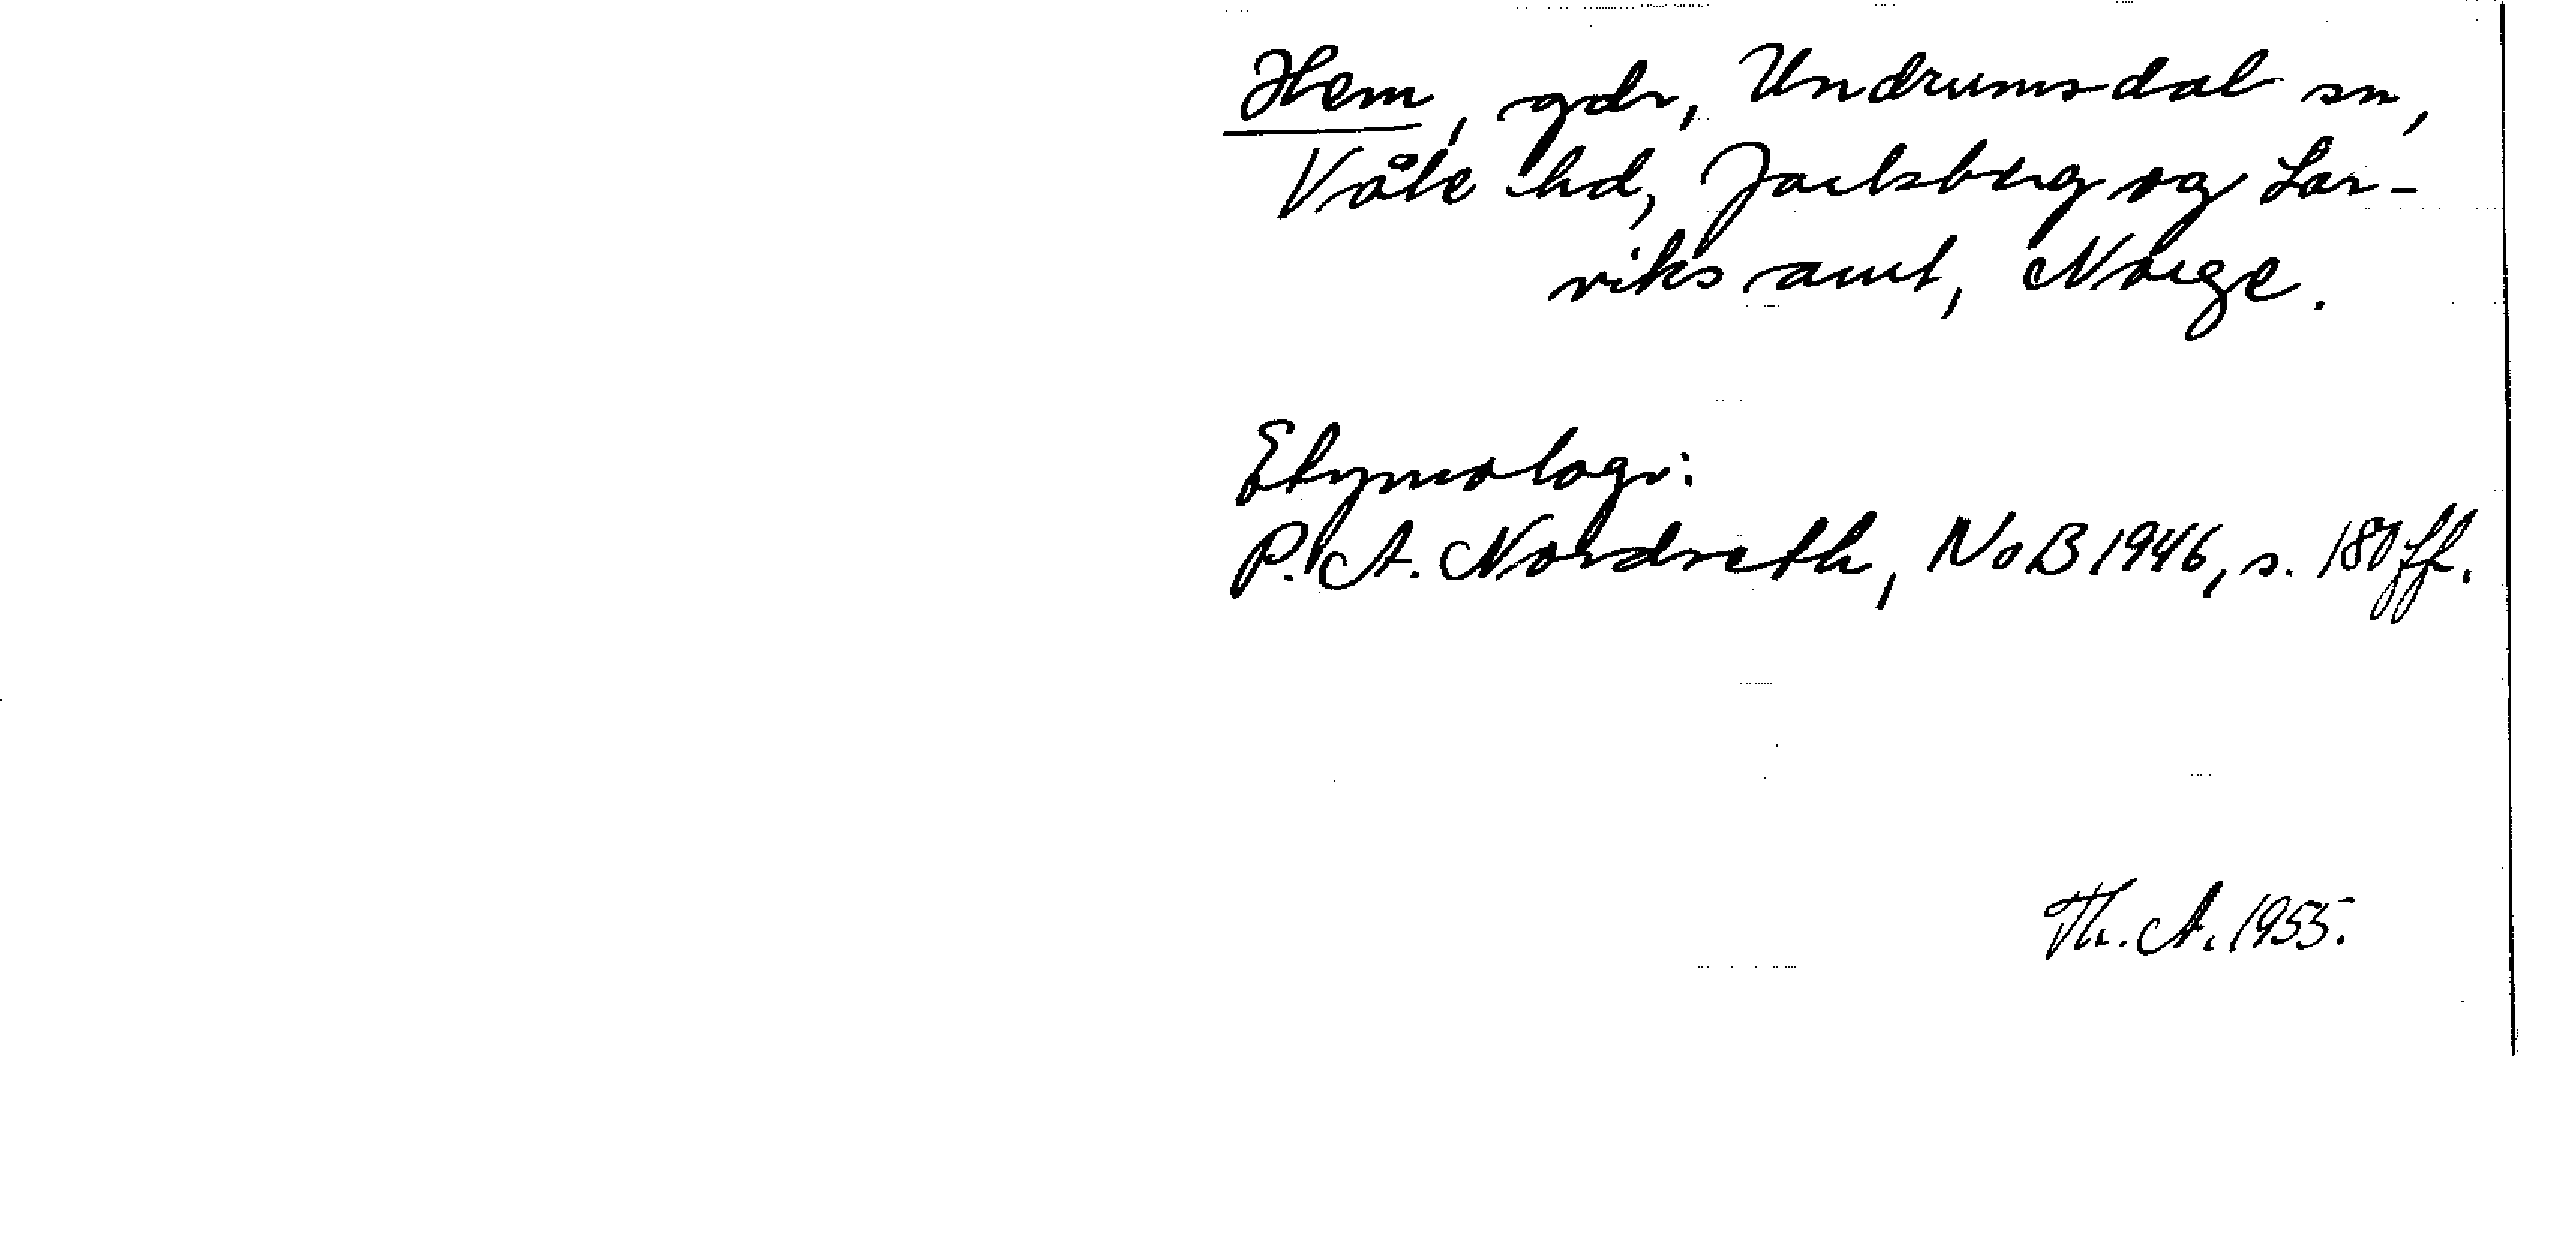 Hem, gdr, Undrumsdal sn,
Våle hd, Jarlsberg og Lar-
viks amt, Norge.
Etymologi:
P. A. Nordseth, NoB 1946, s. 180 ff.
Th. A. 1955.